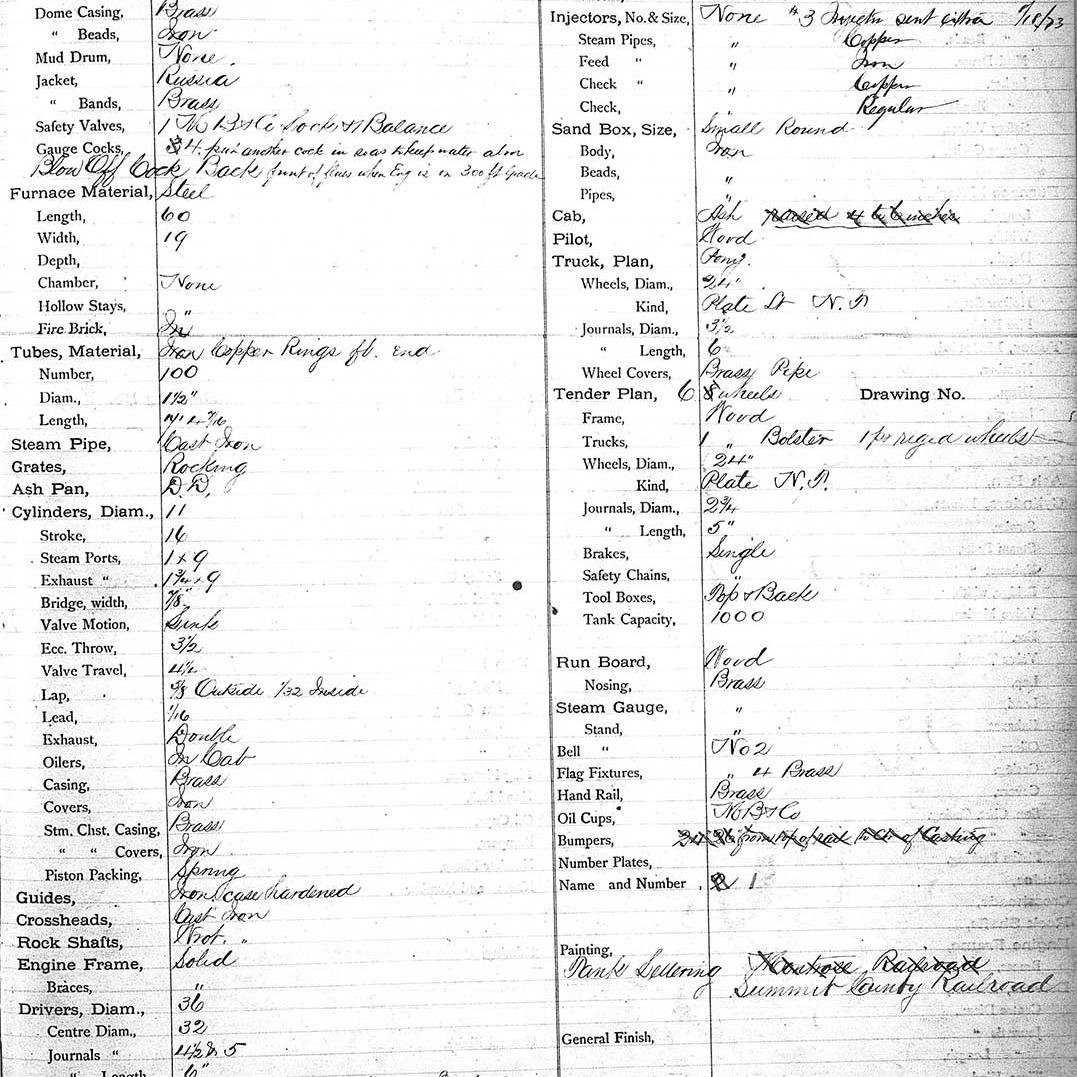 Dome Casing, Brass
" Beads, Iron
Mud Drum, None.
Jacket, Russia
" Bands, Brass
Safety Valves, 1 M B & Co Balance
Gauge Cocks, 4. put another cock in so as to keep water alon
Blow Off Cock Back front of flues when Eng is on 300 ft Grade
Furnace Material, Steel
Length, 60
Width, 19
Depth,
Chamber, None
Hollow Stays, "
Fire Brick,
Tubes, Material, Iron Copper Rings fb. End
Number, 100
Diam., 1½"
Length,
Steam Pipe, Cast Iron
Grates, Rocking
Ash Pan, D.D.
Cylinders, Diam., 11
Stroke, 16
Steam Ports, 1 x 9
Exhaust " 1¾ x 9
Bridge, width, ⅞"
Valve Motion, Link
Ecc. Throw, 3½
Valve Travel,
Lap, ⅝ Outside 1/32 Inside
Lead, 1/16
Exhaust, Double
Oilers, In Cab
Casing, Brass
Covers, Iron
Stm. Chst. Casing, Brass
" " Covers, Iron
Piston Packing, Spring
Guides, Iron, case hardened
Crossheads, Cast Iron
Rock Shafts, Wrot. "
Engine Frame, Solid
Braces, "
Drivers, Diam., 36
Centre Diam., 32
Journals " 4½ & 5
" Length 6"
Injectors, No. & Size, None # 3 Injectr sent extra
Steam Pipes, " Copper
Feed " " Iron
Check " " Copper
Check, " Regular
Sand Box, Size, Small Round
Body, Iron
Beads, "
Pipes, "
Cab, Ash raised 4 to 6 inches
Pilot, Wood
Truck, Plan, Pony.
Wheels, Diam., 24"
Kind, Plate St N.P.
Journals, Diam., 3½
" Length, 6
Wheel Covers, Brass Pipe
Tender Plan, 6 wheels Drawing No.
Frame, Wood
Trucks, 1 " Bolster 1 pr regid wheels
Wheels, Diam., 24"
Kind, Plate N.P.
Journals, Diam., 2¾
" Length, 5"
Brakes, Single
Safety Chains, "
Tool Boxes, Top & Back
Tank Capacity, 1000
Run Board, Wood
Nosing, Brass
Steam Gauge, "
Stand, "
Bell " No 2
Flag Fixtures, " 4 Brass
Hand Rail, Brass
Oil Cups, No B & Co
Bumpers, 24 26" from top of rail to Ctr of Casting
Number Plates,
Name and Number, 2 1
Painting,
Tank Lettering Montrose Railroad
Summit County Railroad
General Finish,